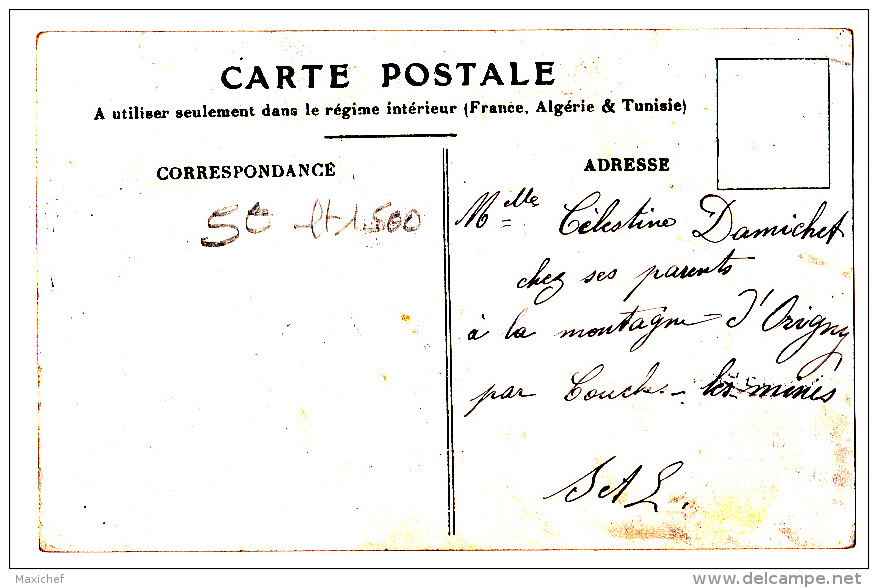 CARTE POSTALE
A utiliser seulement dans le régime intérieur (France, Algérie & Tunisie)
CORRESPONDANCE
ADRESSE
Melle Célestine Damichet
chez ses parents
à la montagne d'Origny
par Couch.-les-mines
S et L.
1.500
Maxichef
delcampe.net